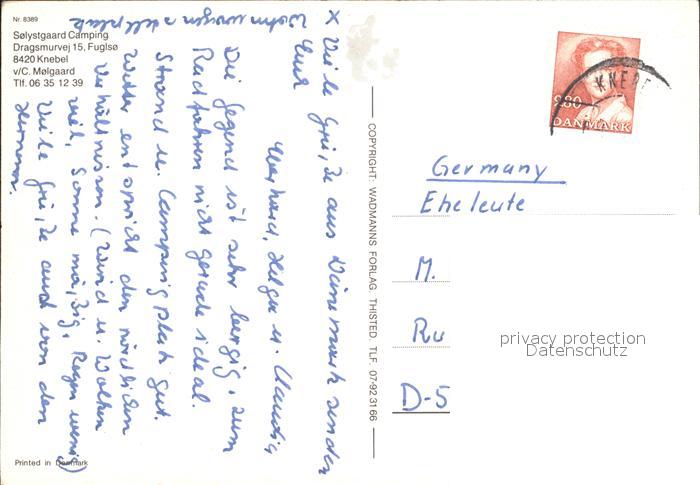 Nr. 8389
Sølystgaard Camping
Dragsmurvej 15, Fuglsø
8420 Knebel
v/C. Mølgaard
Tlf. 06 35 12 39
x Viele Grüße aus Dänemark senden
Euch
Gerhard, Helga u. Claudia
Die Gegend ist sehr bergig, zum
Radfahren nicht gerade ideal.
Strand u. Campingplatz gut.
Wetter entspricht den nördlichen
Verhältnissen. (Wind u. Wolken
viel, Sonne mäßig, Regen wenig)
Viele Grüße auch von den
x Wohnwagenstellplatz
COPYRIGHT: WADMANNS FORLAG, THISTED. TLF. 07-92 31 66
KNEBE
2.80
DANMARK
Germany
Eheleute
M.
Ru
D-5
privacy protection
Datenschutz
Printed in Denmark